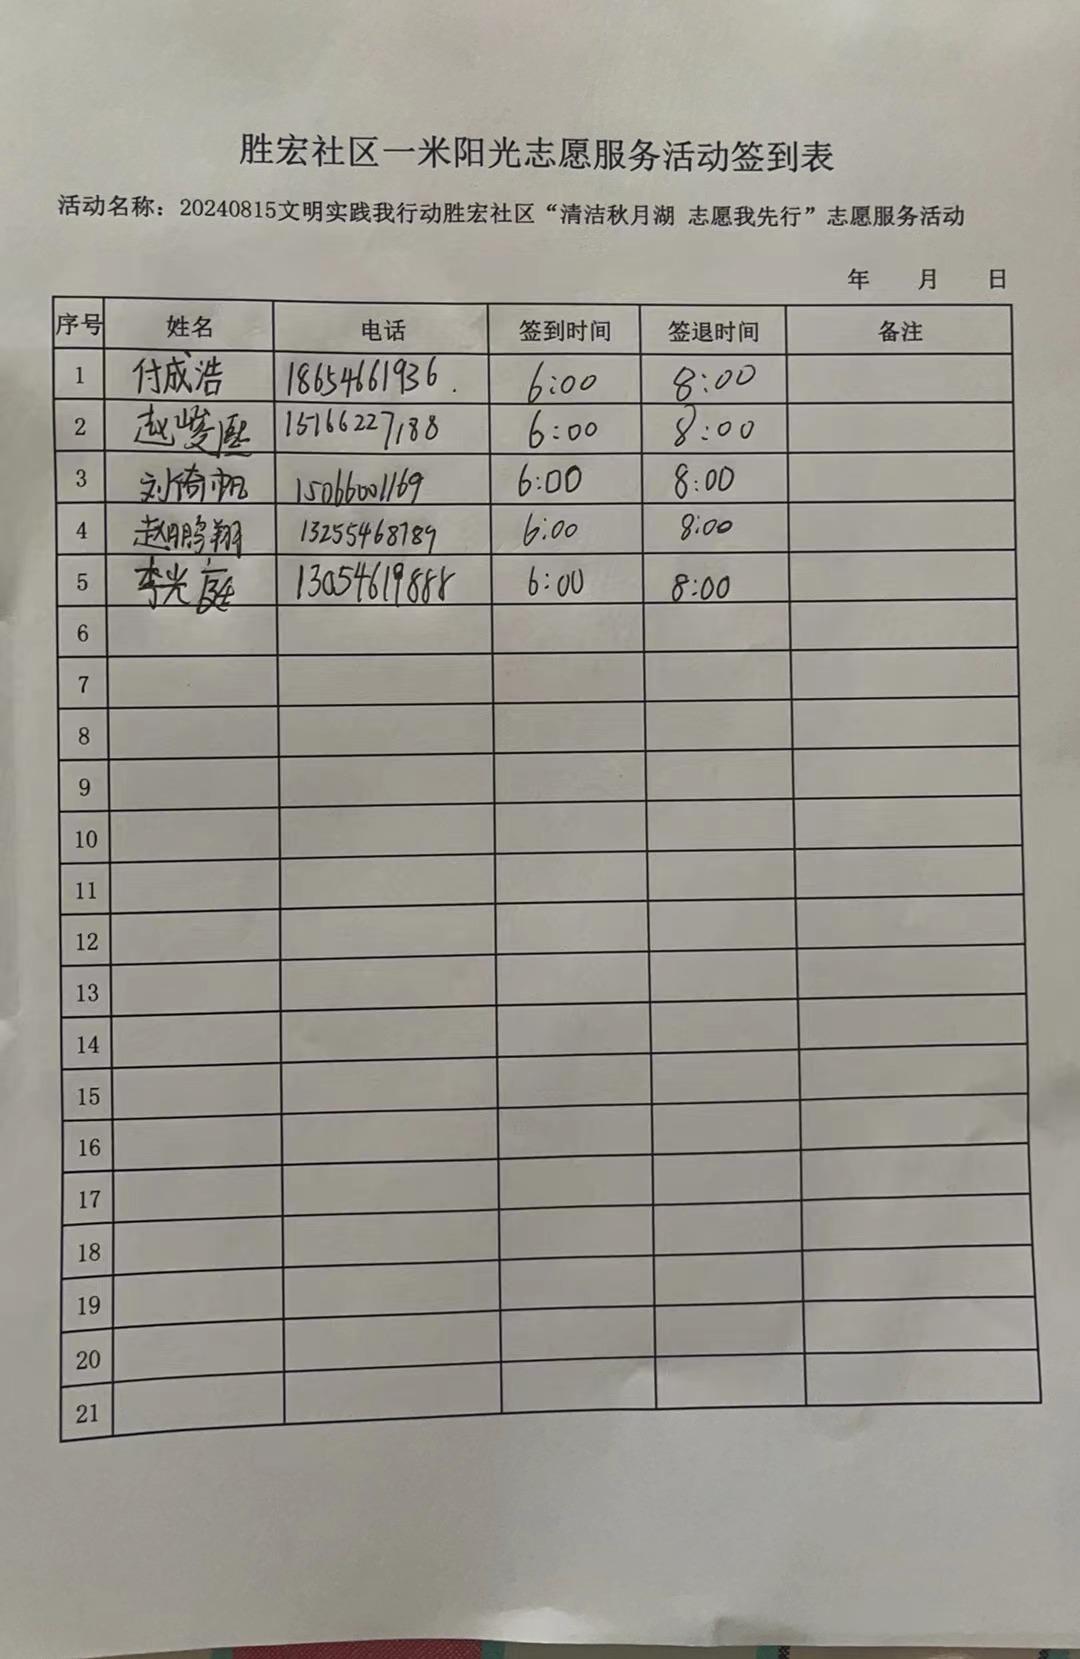 胜宏社区一米阳光志愿服务活动签到表
活动名称：20240815文明实践我行动胜宏社区“清洁秋月湖 志愿我先行”志愿服务活动
年 月 日
序号 姓名 电话 签到时间 签退时间 备注
1 付成浩 18654661936. 6:00 8:00
2 赵峻熙 15166227188 6:00 8:00
3 刘倚帆 15066001169 6:00 8:00
4 赵鹏翔 13255468789 6:00 8:00
5 李光庭 13054619888 6:00 8:00
6
7
8
9
10
11
12
13
14
15
16
17
18
19
20
21